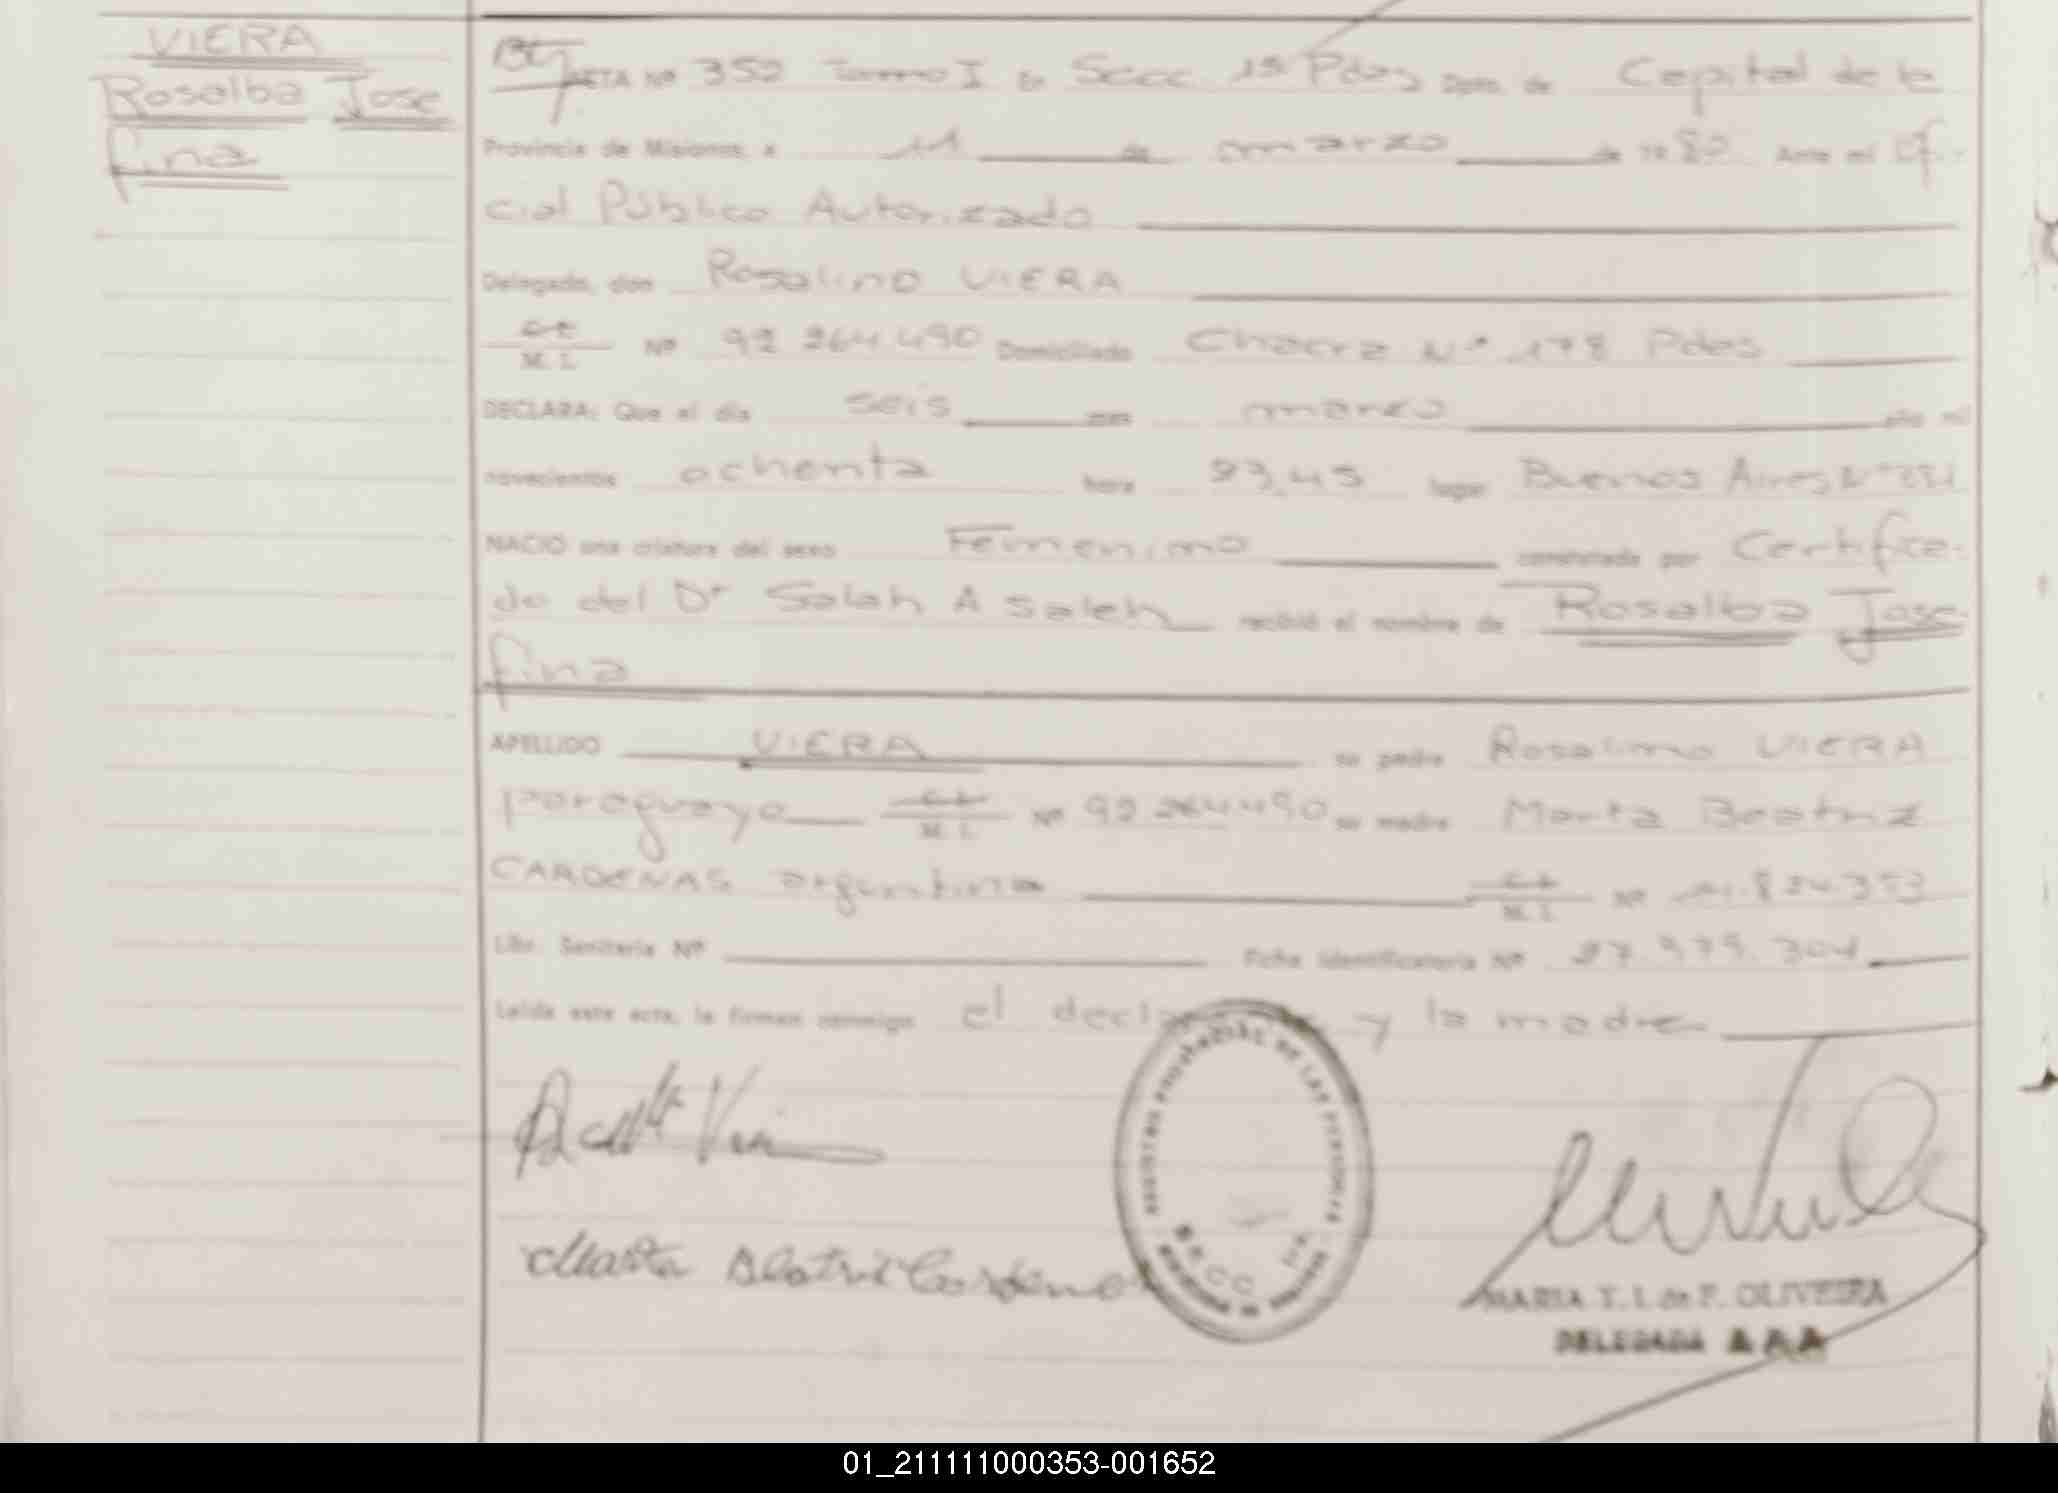 VIERA
Rosalba Jose
fina
ACTA Nº 352 Tomo I Secc 1ª Pdas Dpto. de Capital de la
Provincia de Misiones, a 11 de marzo de 1980 Ante mi Ofi-
cial Público Autorizado
Delegado, don Rosalino VIERA
M. I. Nº 92 264 490 Domiciliado Chacra Nº 178 Pdas
DECLARA: Que el día seis mes marzo año mil
novecientos ochenta hora 23,45 lugar Buenos Aires Nº
NACIO una criatura del sexo Femenino constatado por Certifica-
do del Dr Salah A Saleh recibió el nombre de Rosalba Jose
fina
APELLIDO VIERA su padre Rosalino VIERA
paraguayo M. I. Nº 92 264 490 su madre Marta Beatriz
CARDENAS argentina M. I. Nº
Libr. Sanitaria Nº Ficha Identificatoria Nº 27.979.304
Leída esta acta, la firman conmigo el y la madre
REGISTRO PROVINCIAL DE LAS PERSONAS
SECC
PROVINCIA DE MISIONES
Marta Beatriz Cardenas
MARIA T. I. de F. OLIVEIRA
DELEGADA
01_211111000353-001652